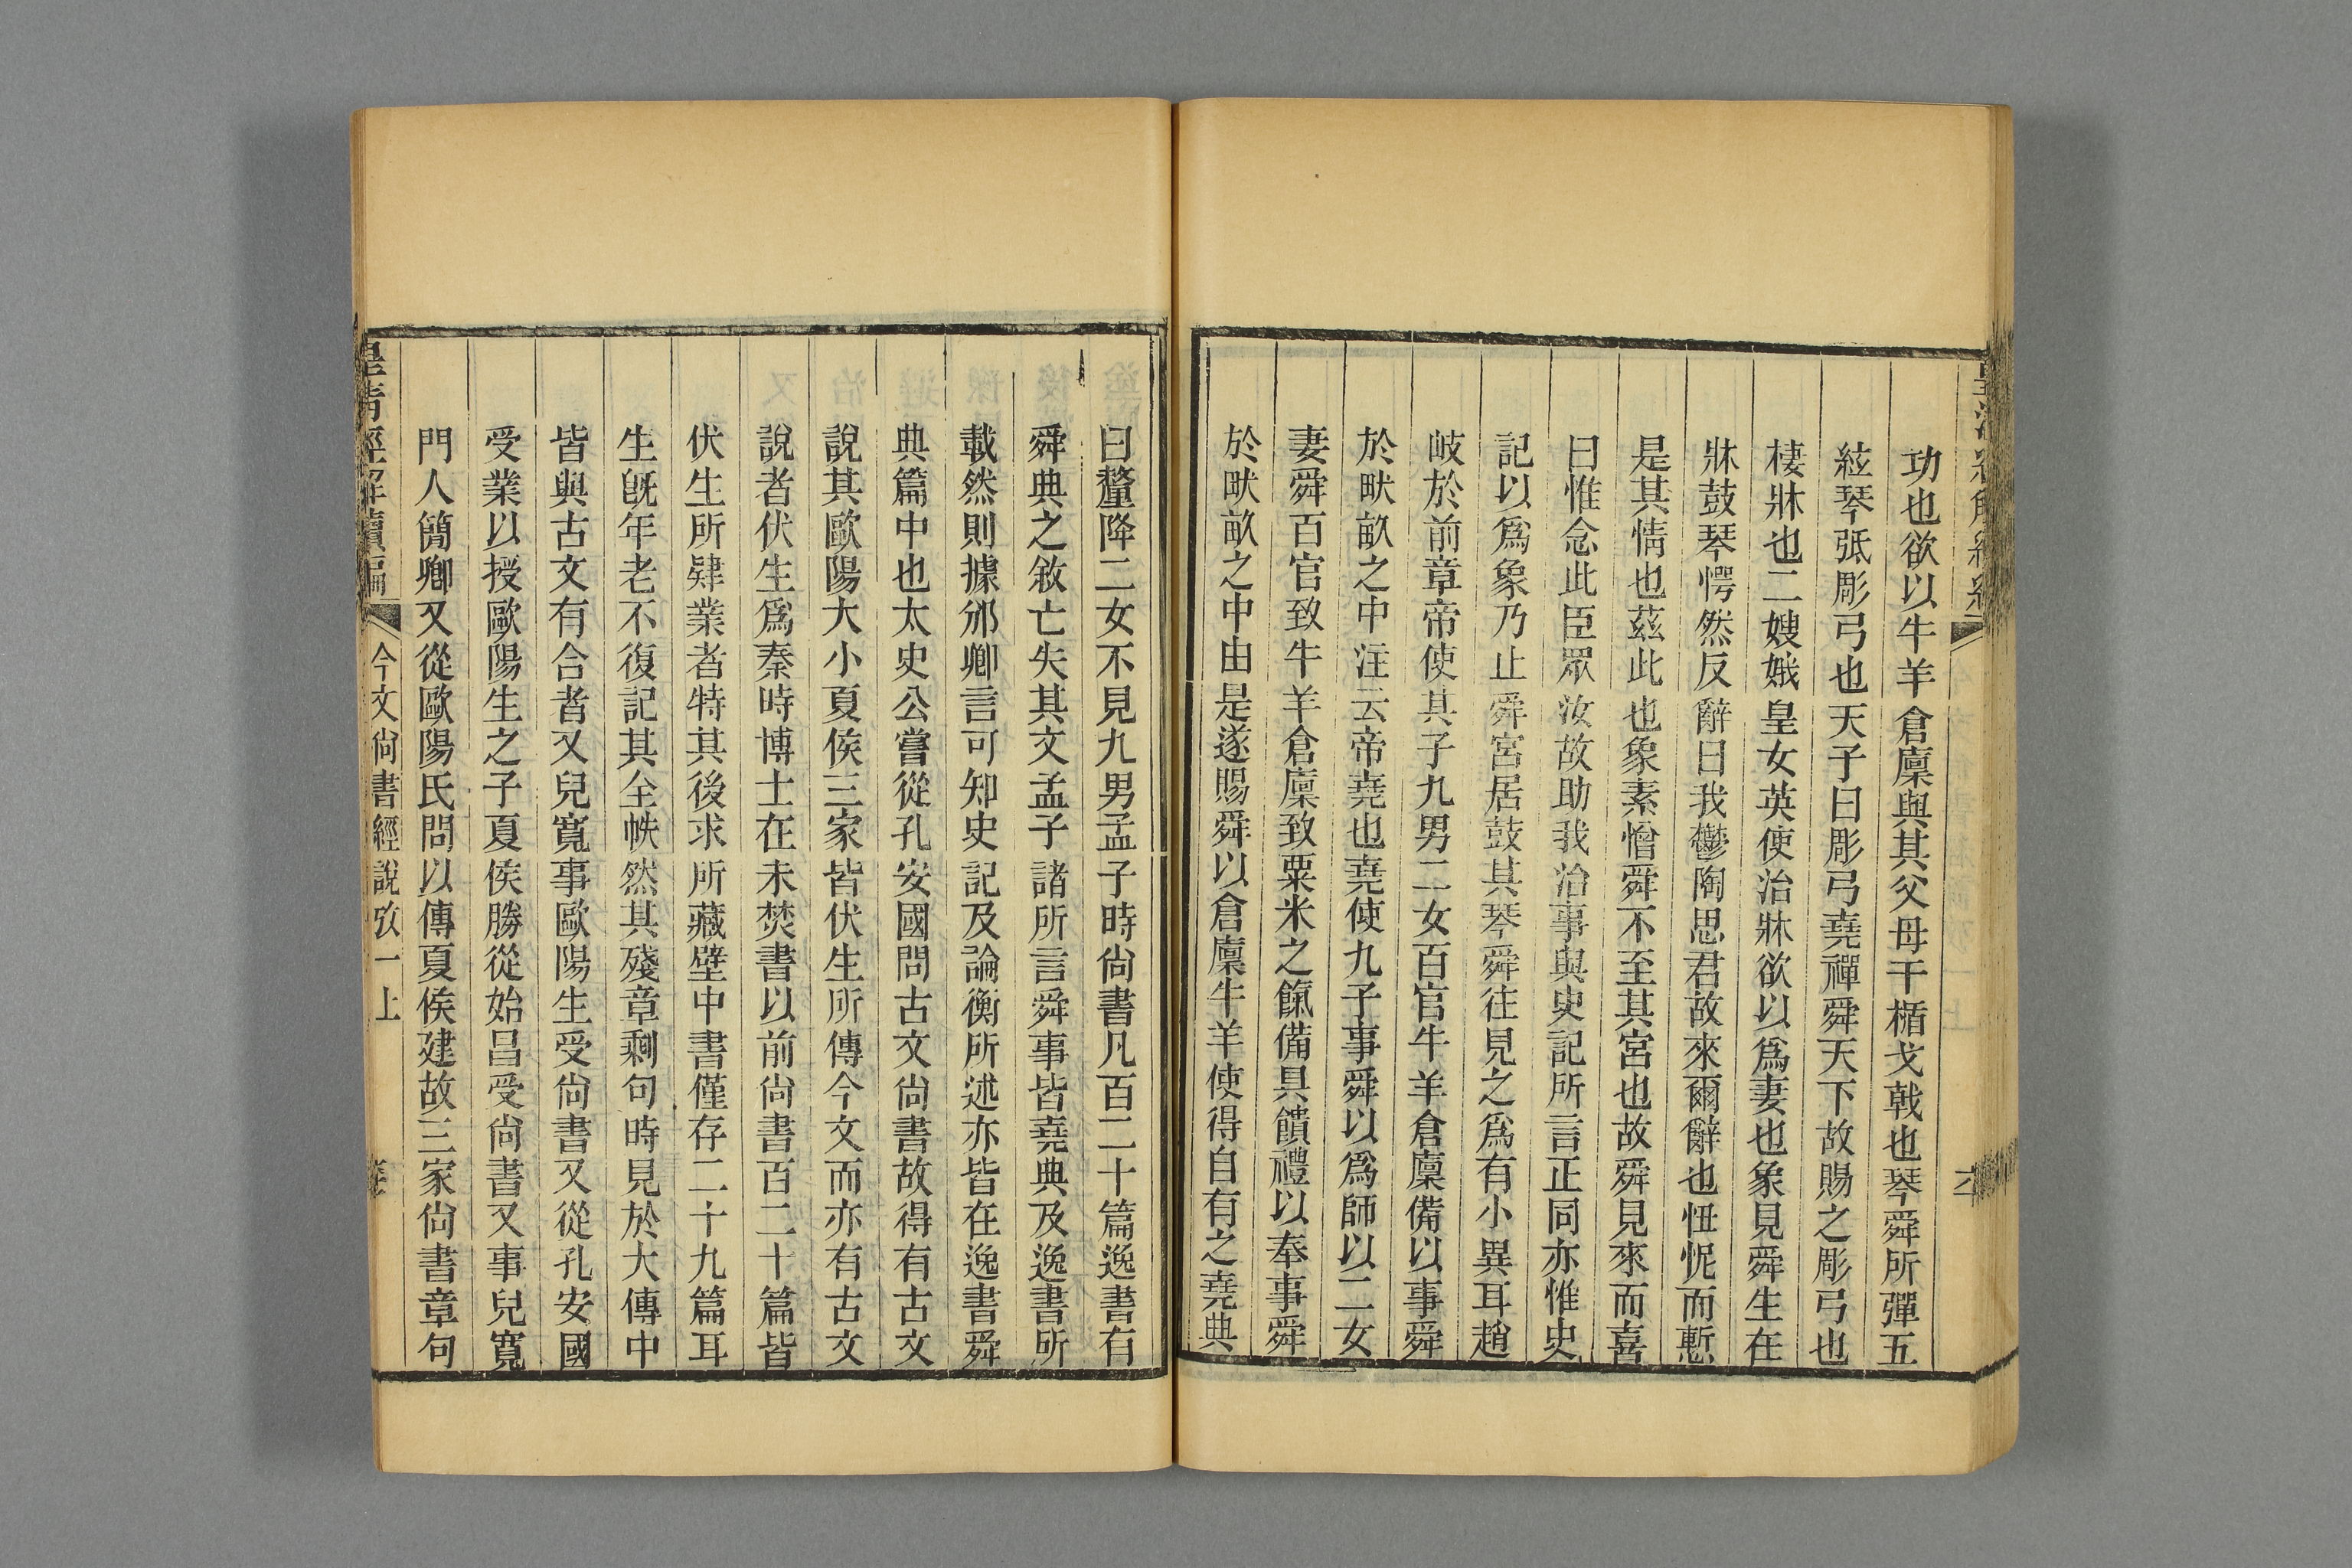 功也欲以牛羊倉廩與其父母干楯戈戟也琴舜所彈五
絃琴弤彫弓也天子曰彫弓堯禪舜天下故賜之彫弓也
棲牀也二嫂娥皇女英使治牀欲以爲妻也象見舜生在
牀鼓琴愕然反辭曰我鬱陶思君故來爾辭也忸怩而慙
是其情也茲此也象素憎舜不至其宮也故舜見來而喜
曰惟念此臣眾汝故助我治事與史記所言正同亦惟史
記以爲象乃止舜宮居鼓其琴舜往見之爲有小異耳趙
岐於前章帝使其子九男二女百官牛羊倉廩備以事舜
於畎畝之中注云帝堯也堯使九子事舜以爲師以二女
妻舜百官致牛羊倉廩致粟米之餼備具饋禮以奉事舜
於畎畝之中由是遂賜舜以倉廩牛羊使得自有之堯典
曰釐降二女不見九男孟子時尙書凡百二十篇逸書有
舜典之敘亡失其文孟子諸所言舜事皆堯典及逸書所
載然則據邠卿言可知史記及論衡所述亦皆在逸書舜
典篇中也太史公嘗從孔安國問古文尙書故得有古文
說其歐陽大小夏侯三家皆伏生所傳今文而亦有古文
說者伏生爲秦時博士在未焚書以前尙書百二十篇皆
伏生所肄業者特其後求所藏壁中書僅存二十九篇耳
生旣年老不復記其全帙然其殘章剩句時見於大傳中
皆與古文有合者又兒寬事歐陽生受尙書又從孔安國
受業以授歐陽生之子夏侯勝從始昌受尙書又事兒寬
門人簡卿又從歐陽氏問以傳夏侯建故三家尙書章句
皇清經解續編 今文尙書經說攷一上